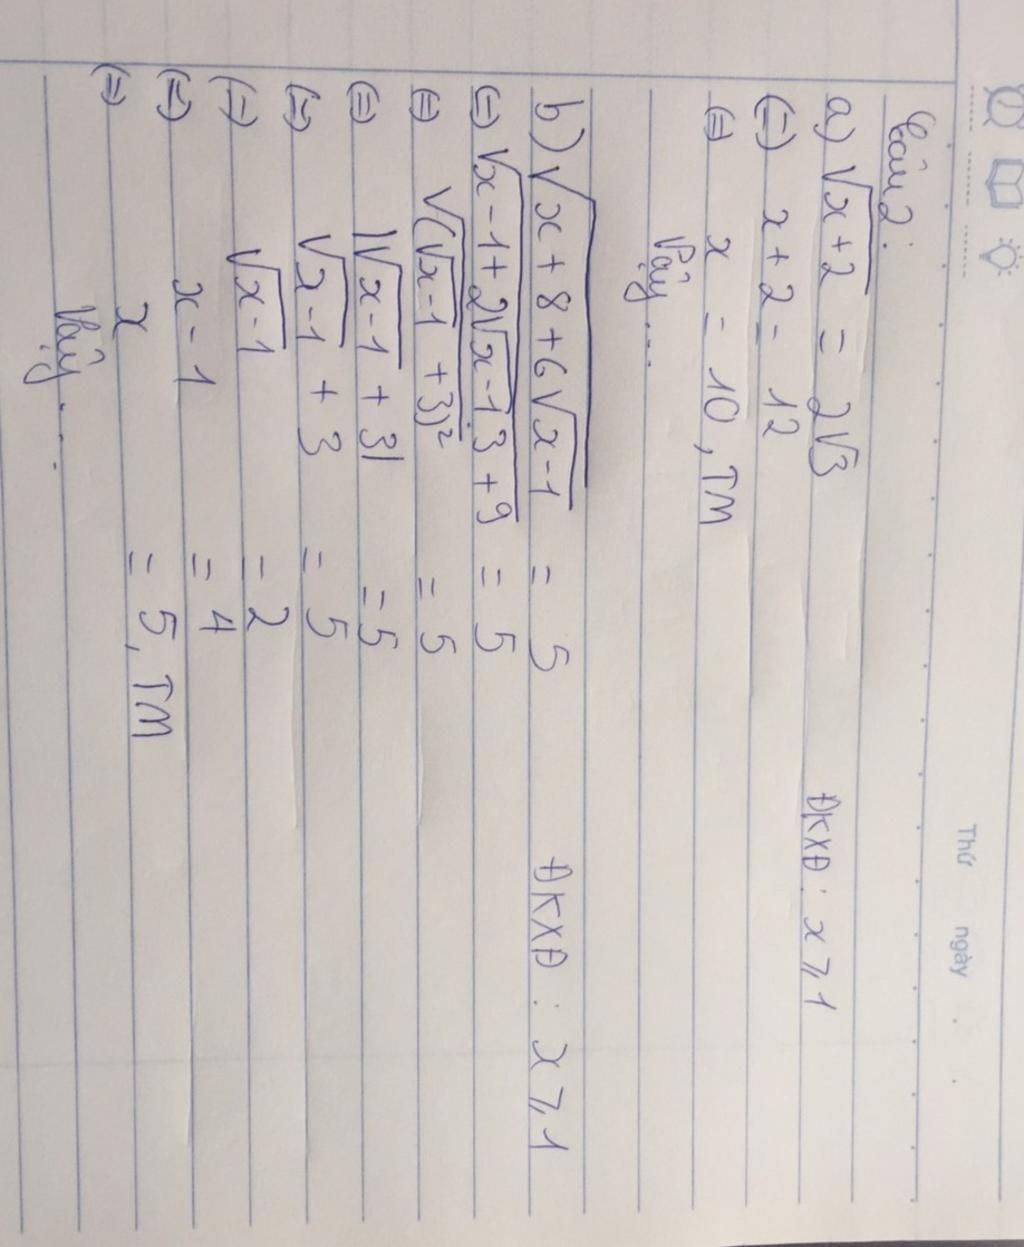 Thứ ngày
Câu 2:
a) √(x+2) = 2√3 ĐKXĐ: x ≥ 1
(=) x + 2 = 12
(=) x = 10, TM
Vậy ...
b) √(x + 8 + 6√(x-1)) = 5 ĐKXĐ: x ≥ 1
(=) √(x-1 + 2√(x-1).3 + 9) = 5
(=) √(√(x-1) + 3)² = 5
(=) |√(x-1) + 3| = 5
(=) √(x-1) + 3 = 5
(=) √(x-1) = 2
(=) x - 1 = 4
(=) x = 5, TM
Vậy ...